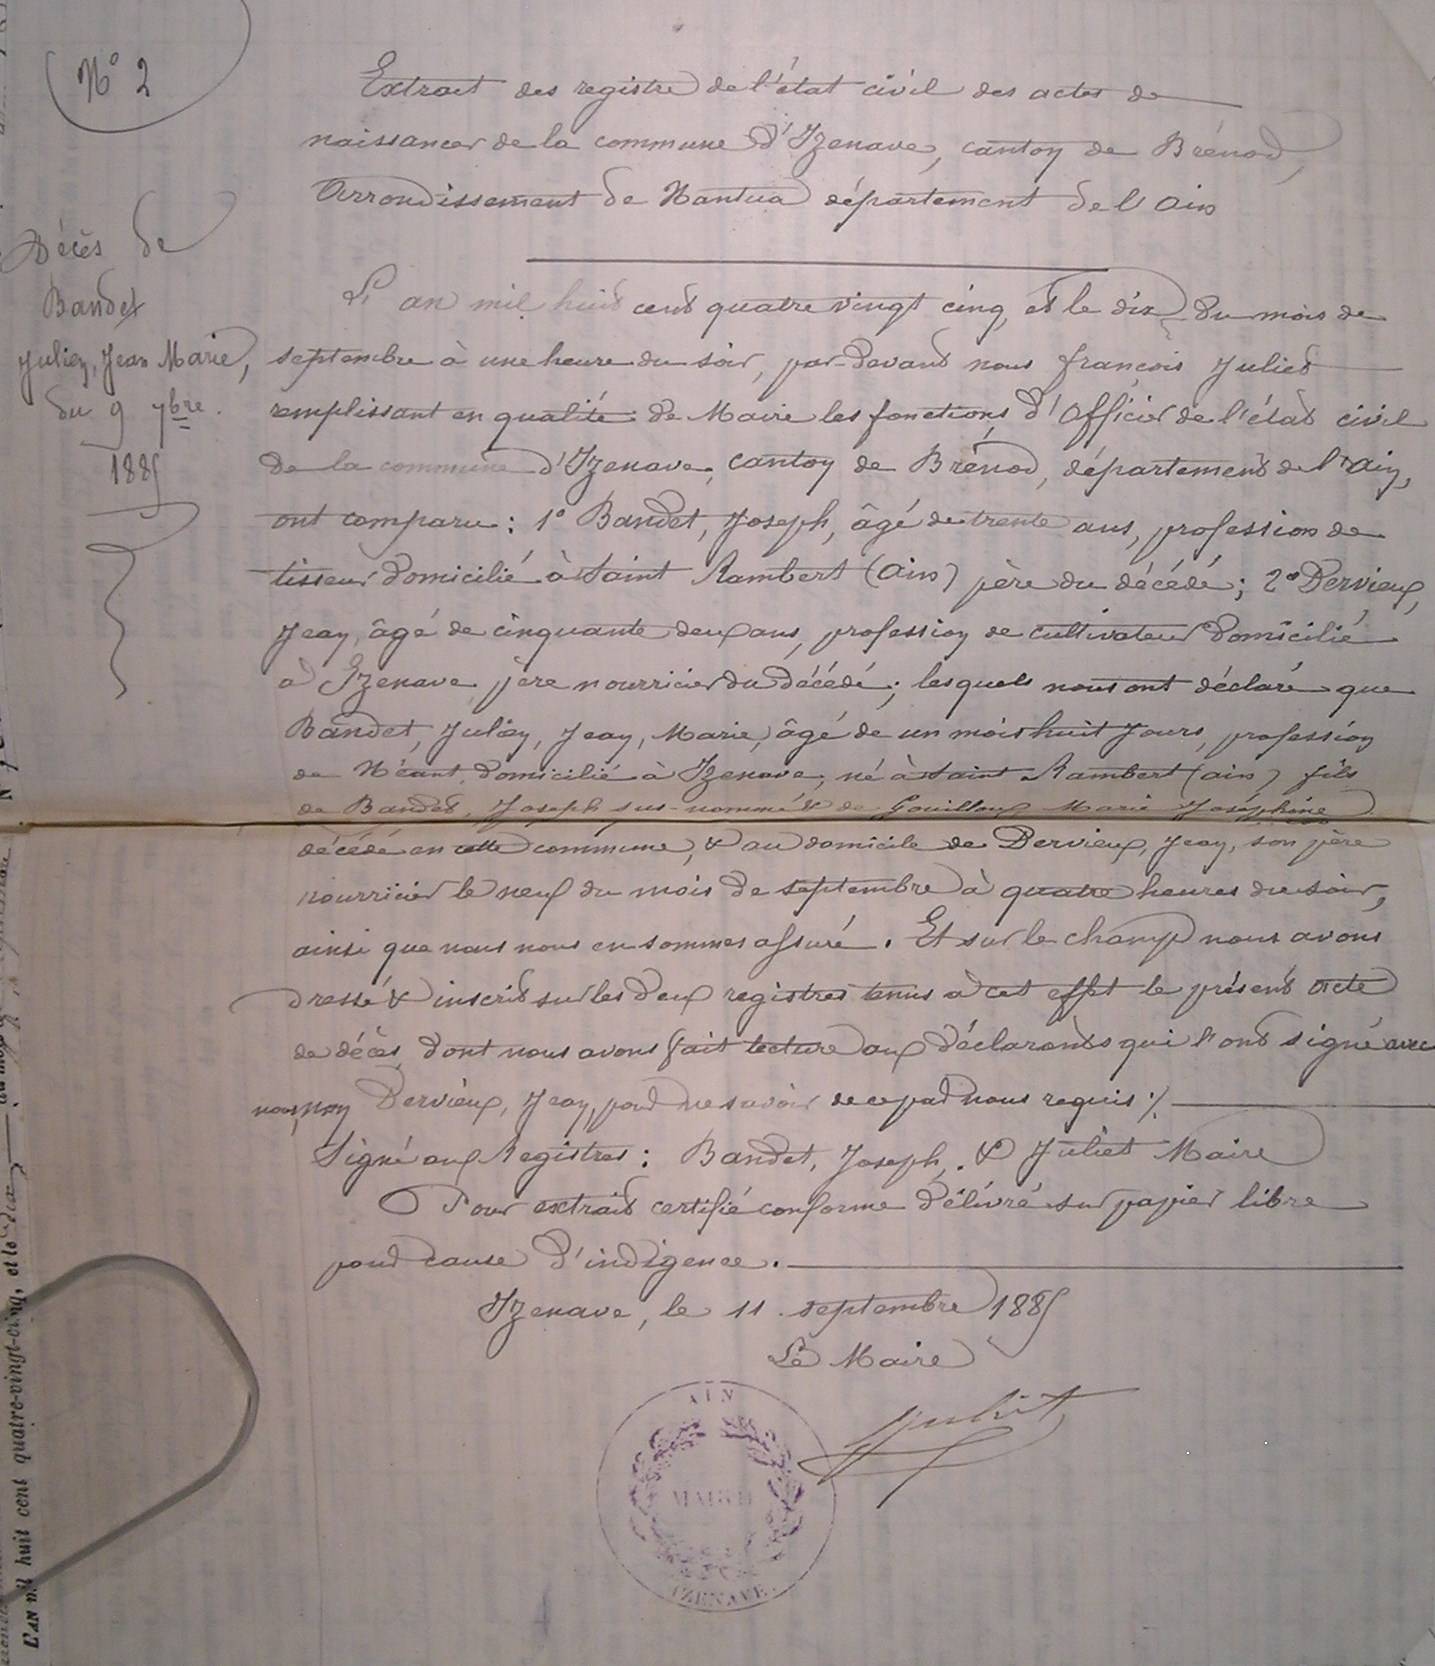 N° 2
Extrait des registre de l'état civil des actes de
naissances de la commune d'Izenave, canton de Brénod,
Arrondissement de Nantua département de l'Ain
Décès de
Bandet
Julien, Jean Marie,
du 9 7bre.
1885
L'an mil huit cent quatre vingt cinq, et le dix du mois de
septembre à une heure du soir, par-devant nous françois Juliet
remplissant en qualité de Maire les fonctions d'Officier de l'état civil
de la commune d'Izenave, canton de Brénod, département de l'Ain,
ont comparu : 1° Bandet, Joseph, âgé de trente ans, profession de
tisseur domicilié à Saint Rambert (Ain) père du décédé ; 2° Dervieux,
Jean, âgé de cinquante deux ans, profession de cultivateur domicilié
à Izenave père nourricier du décédé ; lesquels nous ont déclaré que
Bandet, Julien, Jean, Marie, âgé de un mois huit jours, profession
de Néant domicilié à Izenave, né à Saint Rambert (ain) fils
de Bandet, Joseph sus-nommé & de Gouilloux Marie Joséphine
décédé en cette commune, & au domicile de Dervieux, Jean, son père
nourricier le neuf du mois de septembre à quatre heures du soir,
ainsi que nous nous en sommes assuré. Et sur le champ nous avons
dressé & inscrit sur les deux registres tenus à cet effet le présent acte
de décès, dont nous avons fait lecture aux déclarants qui l'ont signé avec
nous, non Dervieux, Jean, pour ne savoir de ce par nous requis ./.
Signé aux Registres : Bandet, Joseph, & Juliet Maire
Pour extrait certifié conforme délivré sur papier libre
pour cause d'indigence.
Izenave, le 11 septembre 1885
Le Maire
Juliet
AIN
MAIRIE
IZENAVE
L'AN mil huit cent quatre-vingt-cinq, et le dix